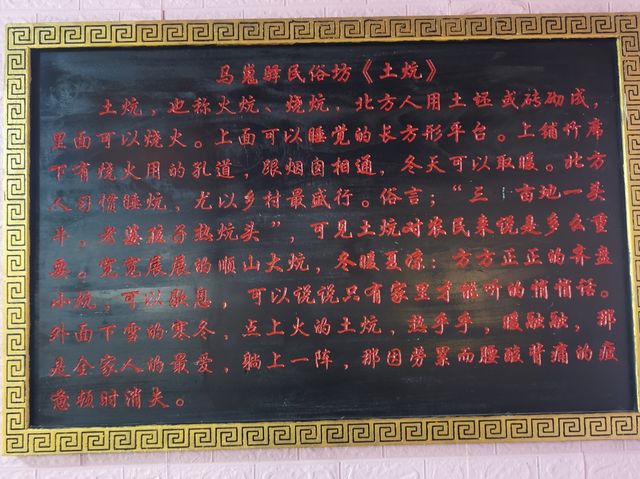 马嵬驿民俗坊《土炕》
土炕，也称火炕、烧炕，北方人用土坯或砖砌成，
里面可以烧火。上面可以睡觉的长方形平台。上铺竹席
下有烧火用的孔道，跟烟囱相通，冬天可以取暖。北方
人习惯睡炕，尤以乡村最盛行。俗言；“三 亩地一头
牛，老婆孩子热炕头”，可见土炕对农民来说是多么重
要。宽宽展展的顺山大炕，冬暖夏凉；方方正正的齐盘
小炕，可以歇息，可以说说只有家里才能听的悄悄话。
外面下雪的寒冬，点上火的土炕，热乎乎，暖融融，那
是全家人的最爱，躺上一阵，那因劳累而腰酸背痛的疲
惫顿时消失。